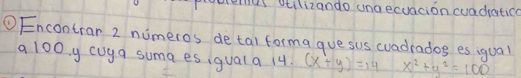 utilizando una ecuación cuadrática
① Encontrar 2 números de tal forma que sus cuadrados es igual
a 100, y cuya suma es igual a 14. (x + y) = 14 x² + y² = 100